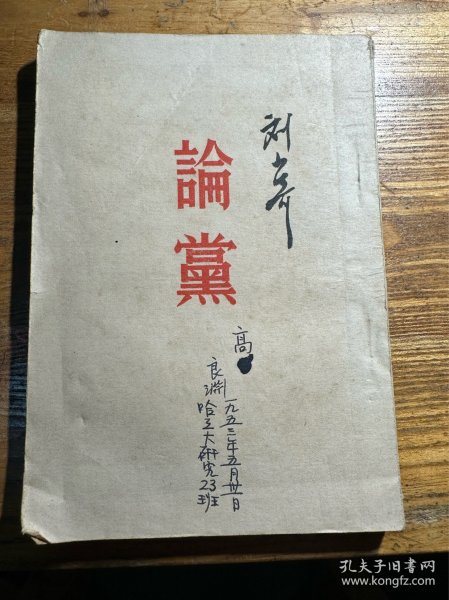 刘少奇
論黨
高
良渊
一九五二年五月卅日
哈工大研究23班
孔夫子旧书网
www.kongfz.com